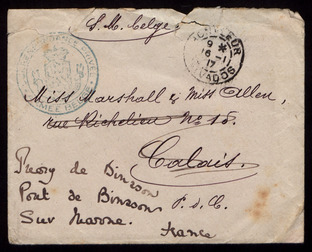 S. M. Belge
HONFLEUR
9 *
16-11
17
CALVADOS
Miss Marshall & Miss Allen,
rue Richelieu No 18.
Calais.
P. d. C.
de
Pont de Binson
Sur Marne.
France